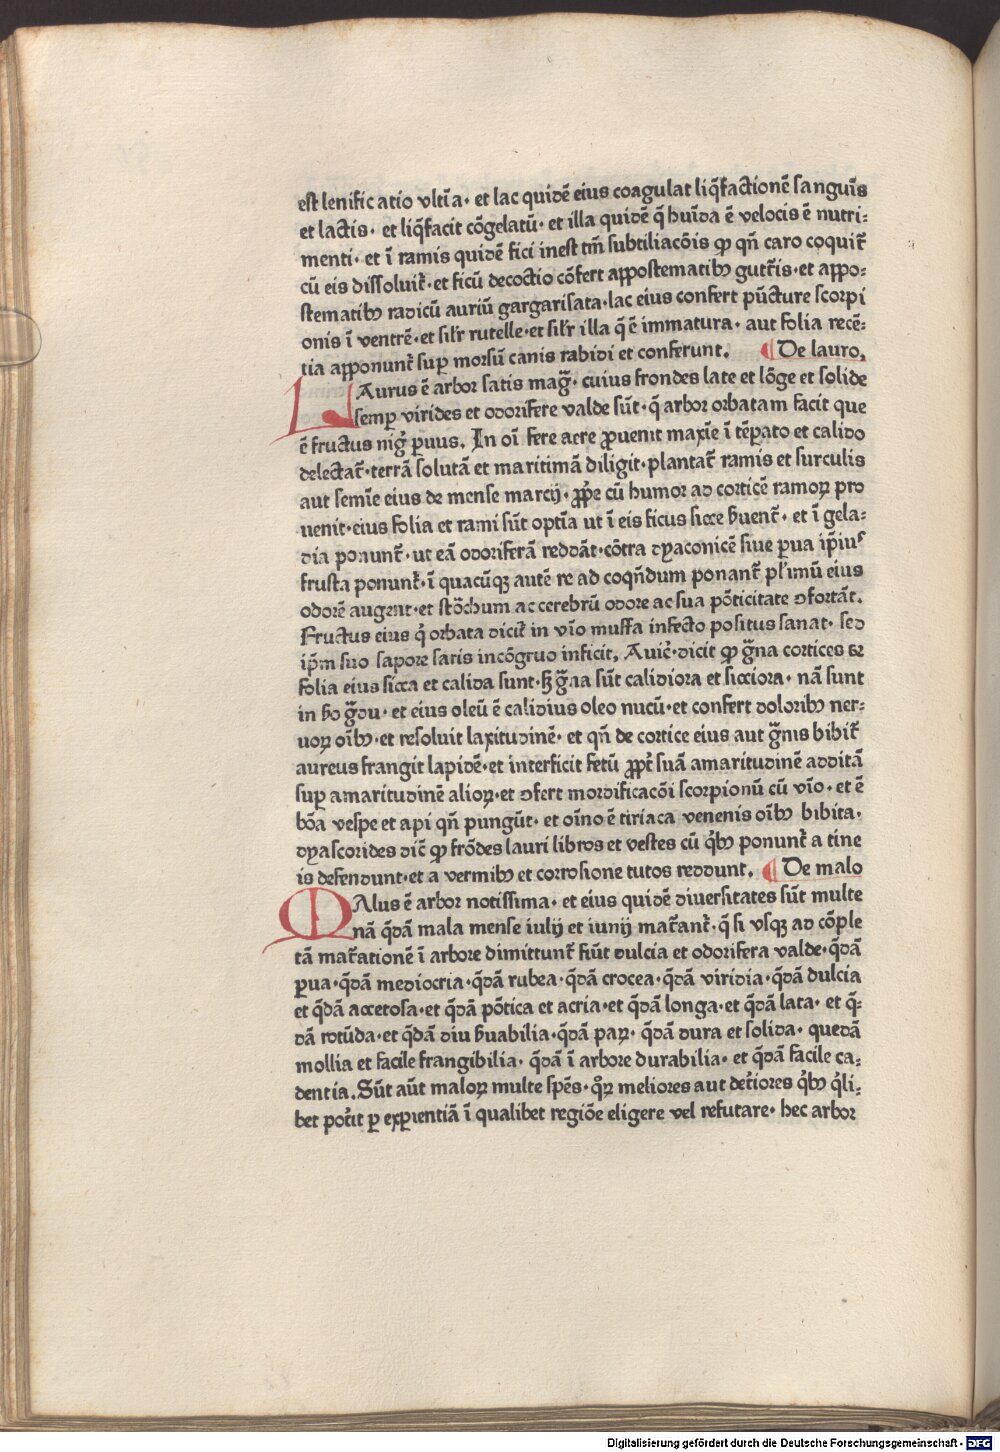 est lenific atio vltĩa· et lac quidẽ eius coagulat liq̃factionẽ sanguĩs
et lactis· et liq̃facit cõgelatũ· et illa quidẽ q̃ huĩda ẽ velocis ẽ nutri⸗
menti· et ĩ ramis quidẽ fici inest tm̃ subtiliacõis ꝙ qñ caro coquit̃
cũ eis dissoluit̃·et ficũ decoctio cõfert appostematibꝫ gutt̃is·et appo⸗
stematibꝫ radicũ auriũ gargarisata·lac eius confert pũcture scorpi
onis ĩ ventrẽ·et sil'r rutelle·et sil'r illa q̃ ẽ immatura· aut folia recẽ⸗
tia apponunt̃ suꝑ morsũ canis rabidi et conferunt. ¶ De lauro.
LAurus ẽ arbor satis mag̃· cuius frondes late et lõge et solide
semꝑ virides et odorifere valde sũt· q̃ arbor orbatam facit que
ẽ fructus nig̃ ꝑuus. In oĩ fere aere ꝓuenit maxĩe ĩ tẽꝑato et calido
delectat̃·terrã solutã et maritimã diligit·plantat̃ ramis et surculis
aut semĩe eius de mense marcij· ꝓp̃e cũ humor ad corticẽ ramoꝝ pro
uenit·eius folia et rami sũt optĩa ut ĩ eis ficus sicce ẜuent̃· et ĩ gela⸗
dia ponunt̃· ut eã odoriferã reddãt·cõtra dyaconicẽ siue ꝑua ip̃iuꝰ
frusta ponunt̃·ĩ quacũqꝫ autẽ re ad coqñdum ponant̃ pl'imũ eius
odorẽ augent·et stõchum ac cerebrũ odore ac sua põticitate ꝯfortãt.
Fructus eius q̃ orbata dicit̃ in vĩo mussa infecto positus sanat· sed
ip̃m suo sapore satis incõgruo inficit. Auic̃·dicit ꝙ g̃na cortices et
folia eius sicca et calida sunt·ꝫ g̃na sũt calidiora et sicciora· nã sunt
in ẜo g̃du· et eius oleũ ẽ calidius oleo nucũ·et confert doloribꝫ ner⸗
uoꝝ oĩbꝫ·et resoluit laxitudinẽ· et qñ de cortice eius aut g̃nis bibit̃
aureus frangit lapidẽ·et interficit fetũ ꝓpt̃ suã amaritudinẽ additã
suꝑ amaritudinẽ alioꝝ·et ꝯfert mordificacõi scorpionũ cũ vĩo·et ẽ
bõa vespe et api qñ pungũt· et oĩno ẽ tiriaca venenis oĩbꝫ bibita·
dyascorides dic̃ ꝙ frõdes lauri libros et vestes cũ q̃bꝫ ponunt̃ a tine
is defendunt·et a vermibꝫ et corrosione tutos reddunt. ¶ De malo
MAlus ẽ arbor notissima· et eius quidẽ diuersitates sũt multe
nã q̃dã mala mense iulij et iunij mat̃ant̃·q̃ si vsqꝫ ad cõple
tã mat̃ationẽ ĩ arbore dimittunt̃ fiũt dulcia et odorifera valde·q̃dã
ꝑua·q̃dã mediocria·q̃dã rubea·q̃dã crocea·q̃dã viridia·q̃dã dulcia
et q̃dã accetosa·et q̃dã põtica et acria·et q̃dã longa·et q̃dã lata· et q̃⸗
dã rotũda·et q̃dã diu ẜuabilia·q̃dã paꝝ· q̃dã dura et solida· quedã
mollia et facile frangibilia· q̃dã ĩ arbore durabilia· et q̃dã facile ca⸗
dentia. Sũt aũt maloꝝ multe sp̃es· q̃ꝝ meliores aut det̃iores q̃bꝫ q̃li⸗
bet pot̃it ꝑ exꝑientiã ĩ qualibet regiõe eligere vel refutare· hec arbor
Digitalisierung gefördert durch die Deutsche Forschungsgemeinschaft - DFG